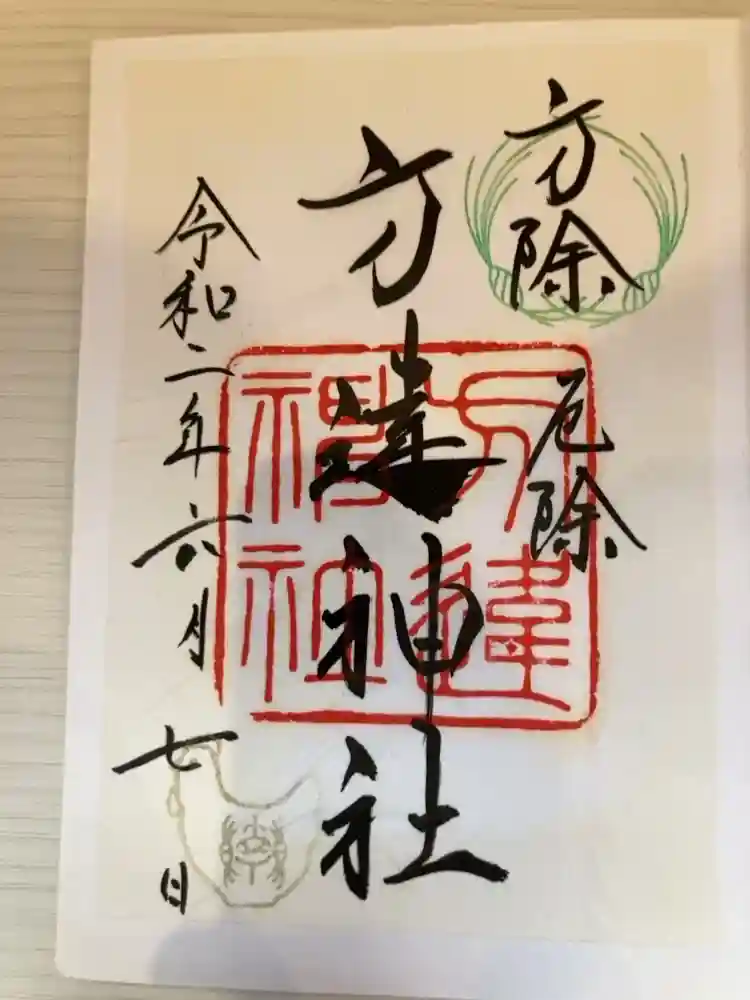 方除
厄除
方違神社
方違神社
令和二年六月七日